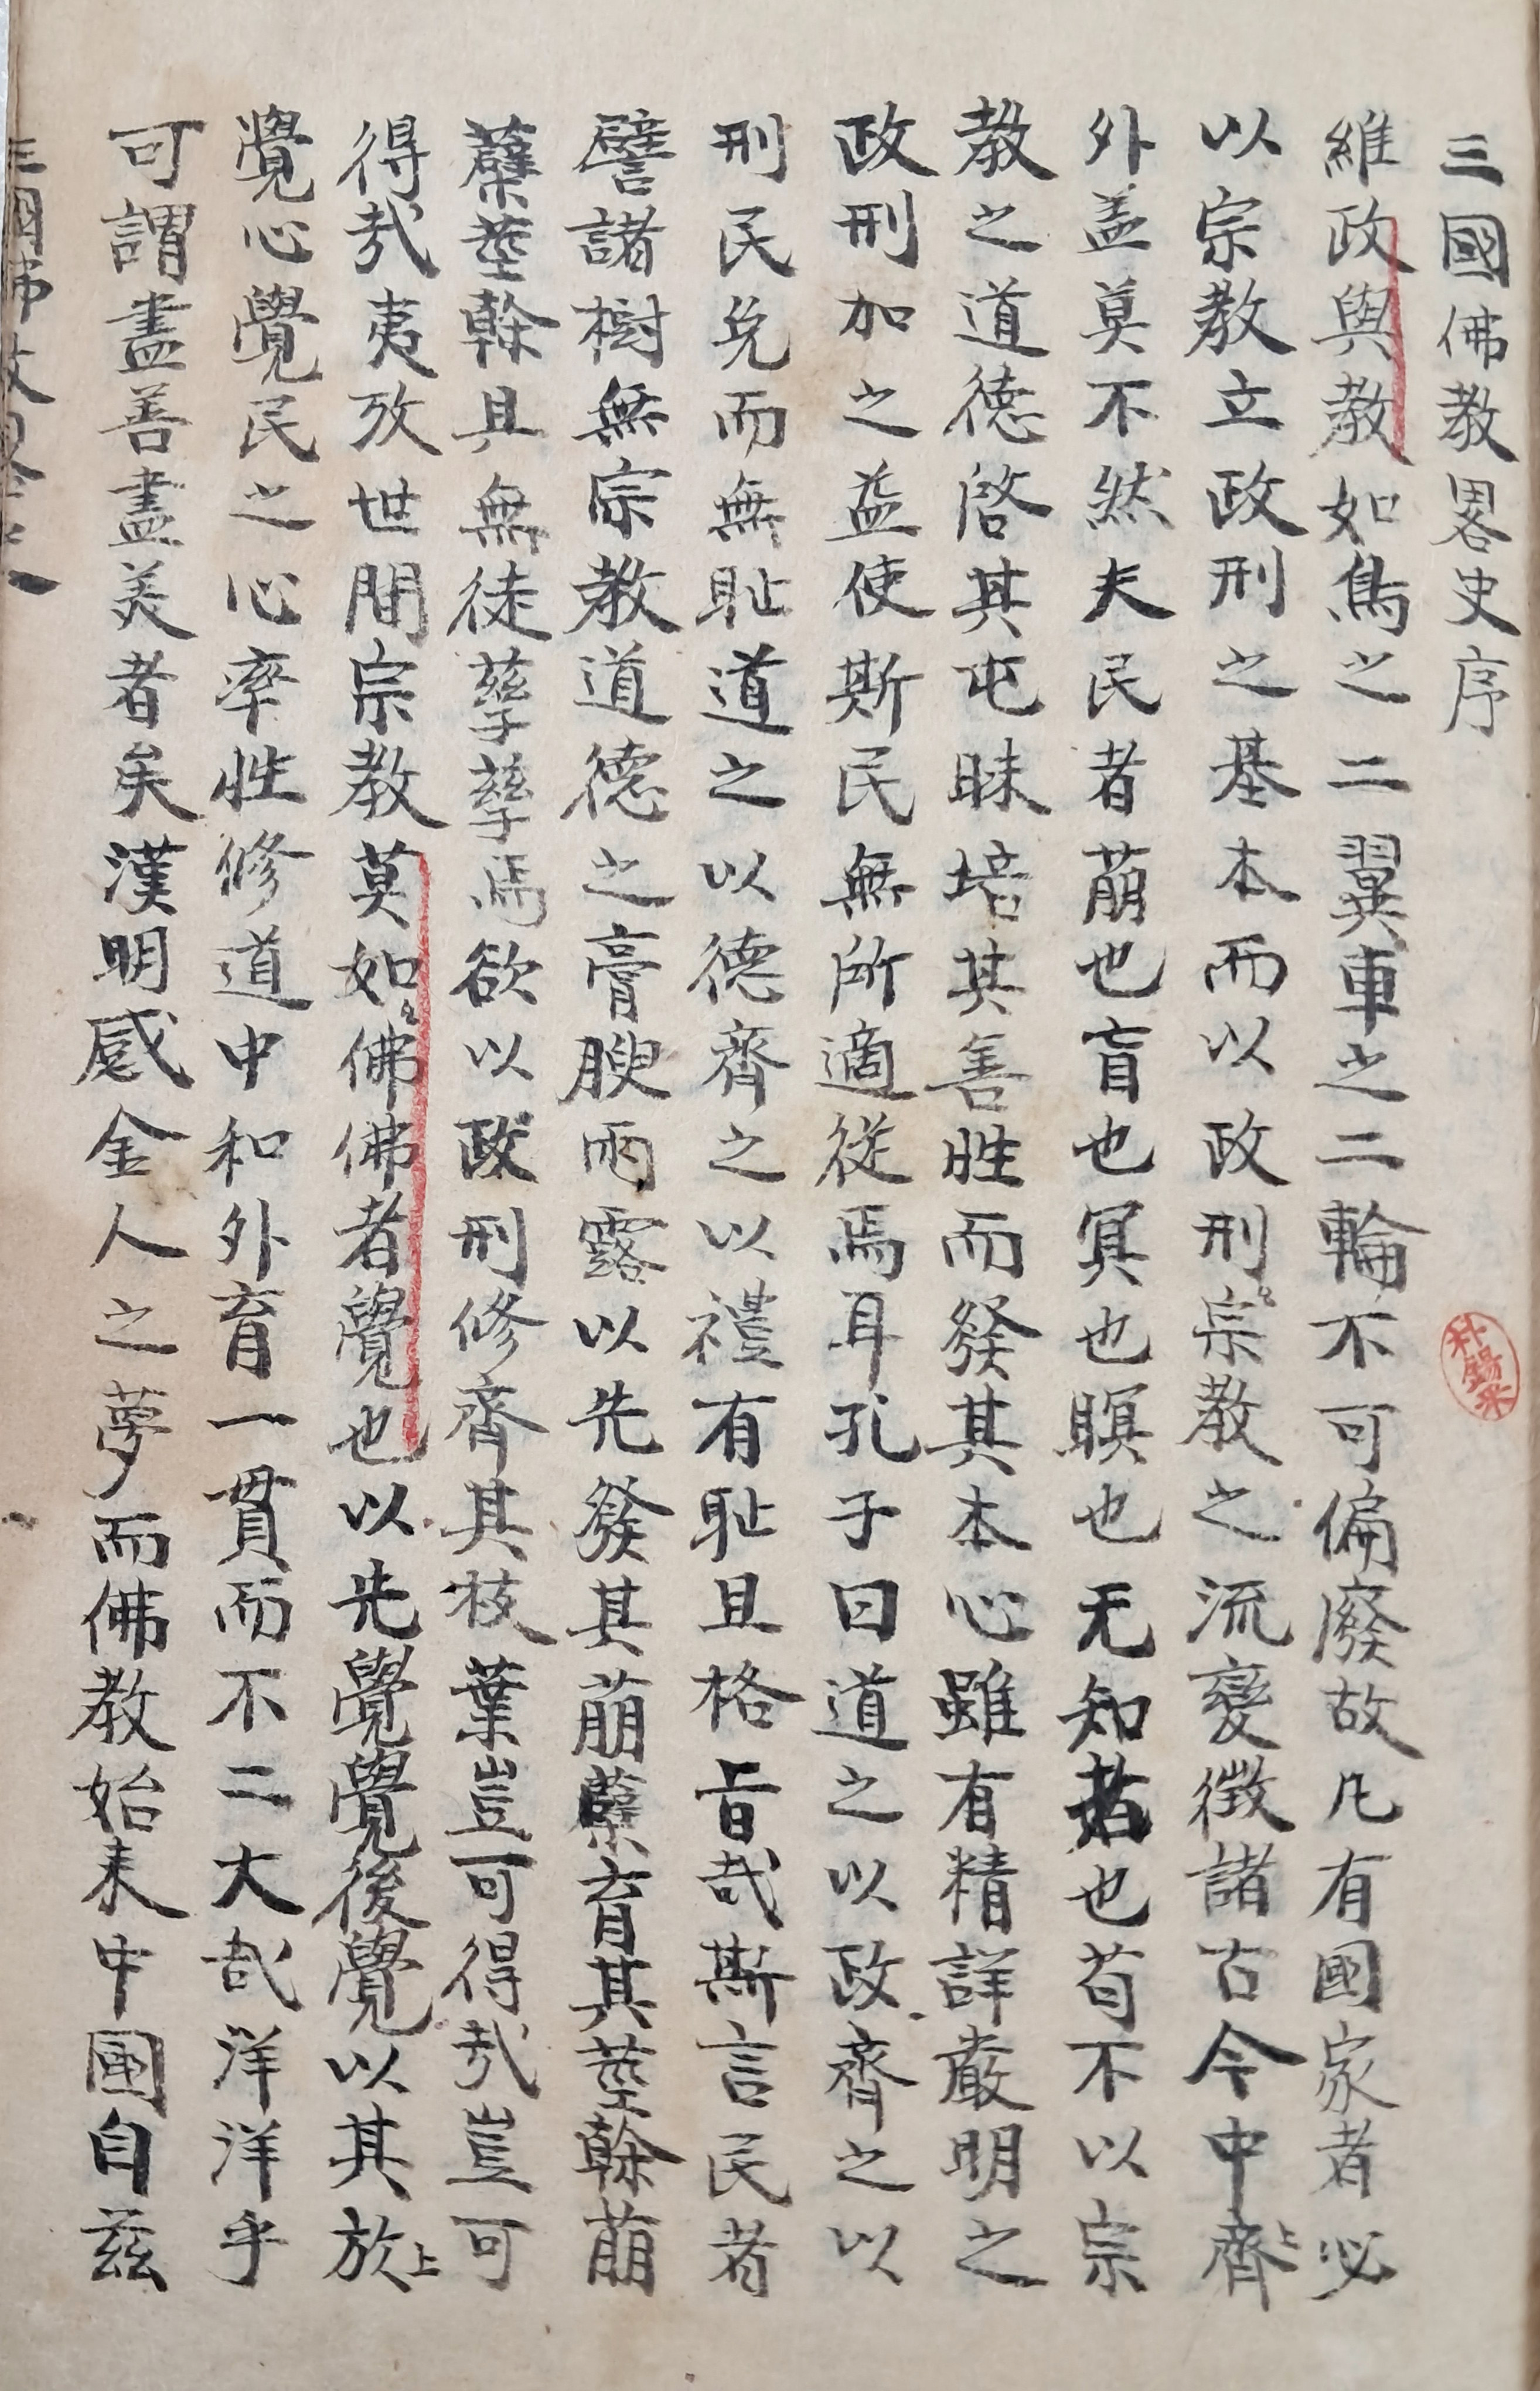 三國佛教畧史序
維政與教如鳥之二翼車之二輪不可偏廢故凡有國家者必
以宗教立政刑之基本而以政刑宗教之流變徵諸古今中齊
上
外盖莫不然夫民者萠也盲也冥也瞑也无知者也苟不以宗
教之道德啓其屯昧培其善性而發其本心雖有精詳嚴明之
政刑加之益使斯民無所適從焉耳孔子曰道之以政齊之以
刑民免而無耻道之以德齊之以禮有耻且格旨哉斯言民者
譬諸樹無宗教道德之膏腴雨露以先發其萠蘗育其莖榦萠
蘗莖榦且無徒孳孳焉欲以政刑修齊其枝葉豈可得哉豈可
得哉夷攷世間宗教莫如佛佛者覺也以先覺覺後覺以其放
上
覺心覺民之心率性修道中和外育一貫而不二大哉洋洋乎
可謂盡善盡美者矣漢明感金人之夢而佛教始来中國自茲
朴錫